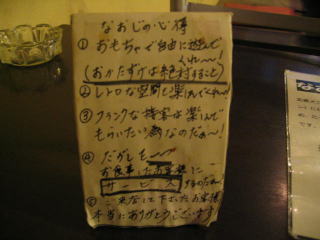 なおじの心得
① おもちゃで自由に遊んで
くれ〜!
(おかたずけは絶対すること)
② レトロな空間を楽しんでくれ〜!
③ フランクな接客は楽しんで
もらいたい
なのだぁ〜!
④ だがしを
お食事したお客様に
サービス
するのだぁ〜
⑤ ご来店して下さったお客様
本当にありがとうございます